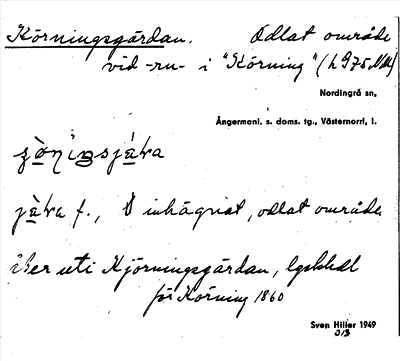 Körningsgärdan. Odlat område
vid -ru- i "Körning" (h 975 Nm)
Nordingrå sn.
Ångermanl. s. doms. tg., Västernorrl. l.
jàka f., inhägnat, odlat område
åker uti Kjörningsgärdan, lgskhdl
för Körning 1860
Sven Hiller 1949